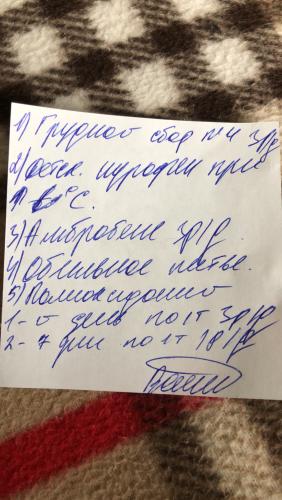 1) Грудной сбор №4 3р/д
2) детск. нурофен при
↑ t°C.
3) Амбробене 3р/д.
4) Обильное питье.
5) Полиоксидоний
1- й день по 1т 3р/д
2- 7 дни по 1т 1р/д